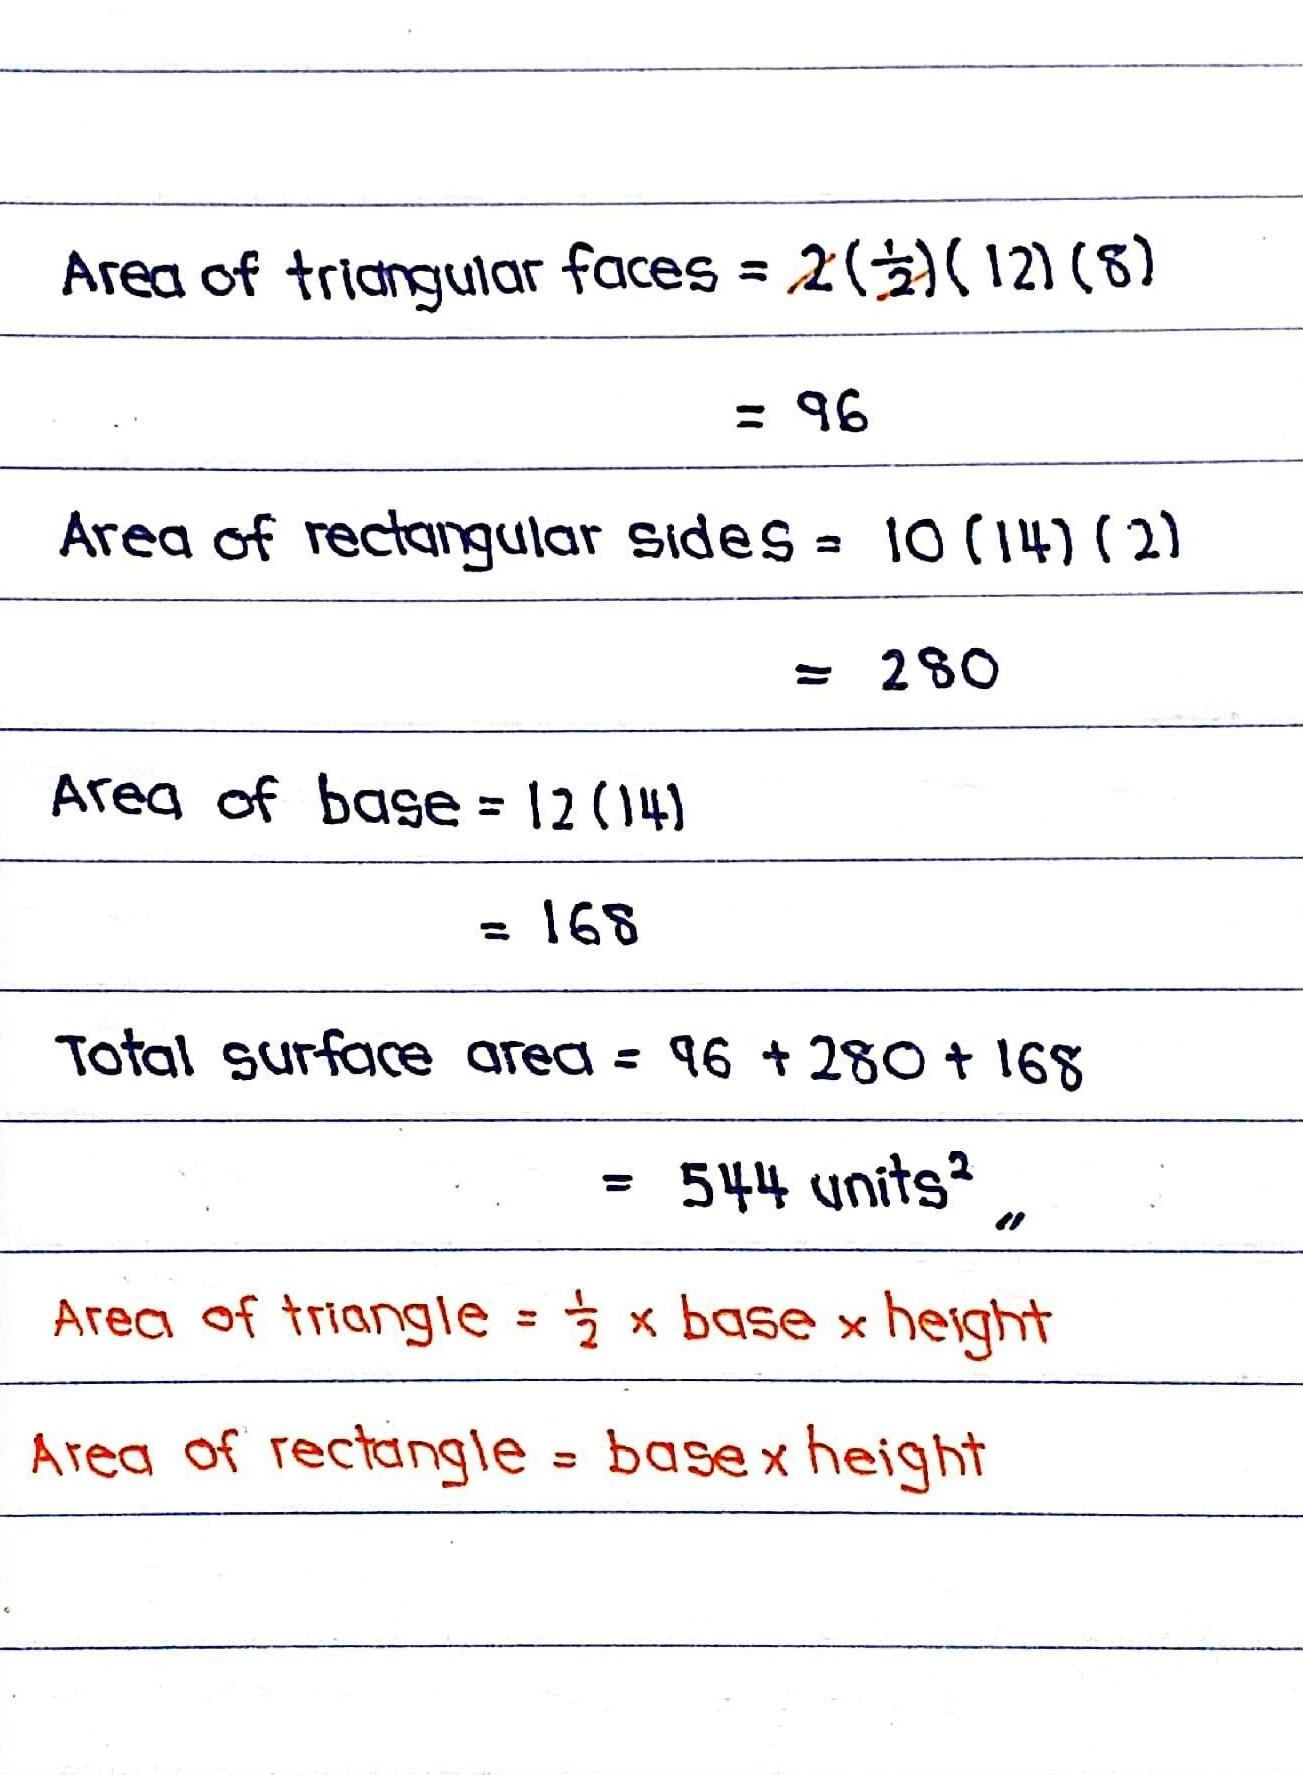 Area of triangular faces = 2(½)(12)(8)
= 96
Area of rectangular sides = 10(14)(2)
= 280
Area of base = 12(14)
= 168
Total surface area = 96 + 280 + 168
= 544 units²
Area of triangle = ½ × base × height
Area of rectangle = base × height